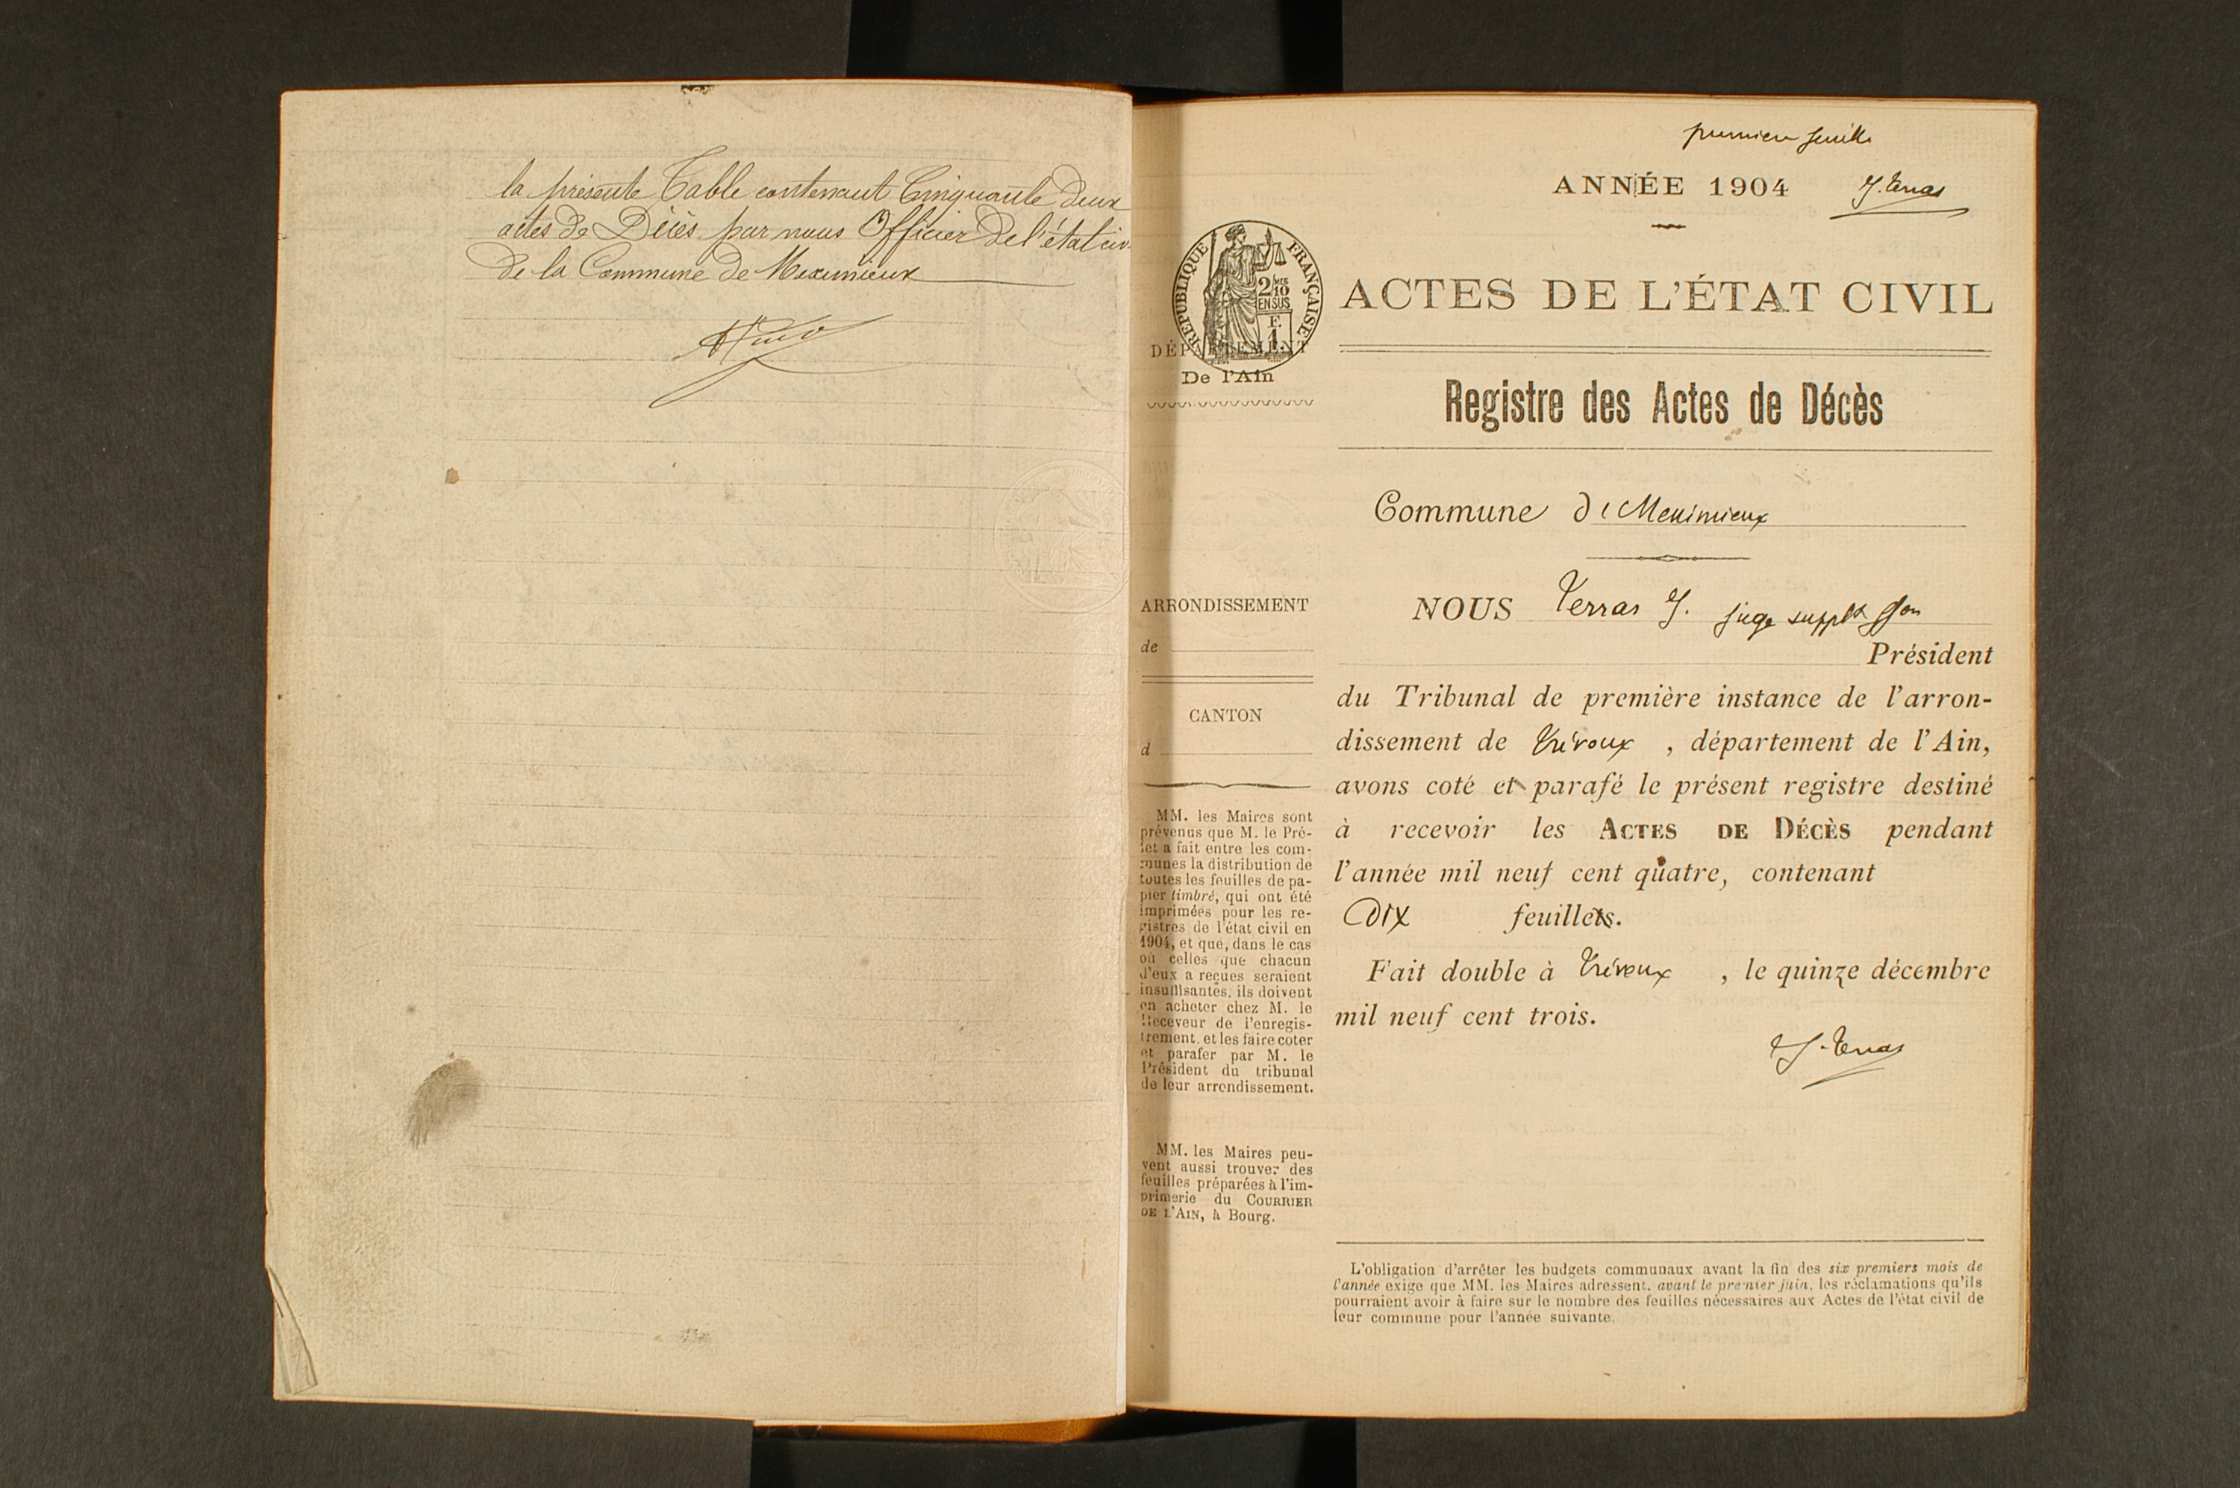 la présente Table contenant Cinquante deux
actes de Décès par nous Officier de l'état civ
de la Commune de Meximieux
premier feuille
ANNÉE 1904
J. Terras
RÉPUBLIQUE FRANÇAISE
2/10
EN SUS
F.
1.
DÉPARTEMENT
De l'Ain
ARRONDISSEMENT
de
CANTON
d
MM. les Maires sont
prévenus que M. le Pré-
fet a fait entre les com-
munes la distribution de
toutes les feuilles de pa-
pier timbré, qui ont été
imprimées pour les re-
gistres de l'état civil en
1904, et que, dans le cas
où celles que chacun
d'eux a reçues seraient
insuffisantes, ils doivent
en acheter chez M. le
Receveur de l'enregis-
trement, et les faire coter
et parafer par M. le
Président du tribunal
de leur arrondissement.
MM. les Maires peu-
vent aussi trouver des
feuilles préparées à l'im-
primerie du COURRIER
DE L'AIN, à Bourg.
ACTES DE L'ÉTAT CIVIL
Registre des Actes de Décès
Commune de Meximieux
NOUS Terras J. juge suppl^t f^on
Président
du Tribunal de première instance de l'arron-
dissement de Trévoux , département de l'Ain,
avons coté et parafé le présent registre destiné
à recevoir les ACTES DE DÉCÈS pendant
l'année mil neuf cent quatre, contenant
Dix feuillets.
Fait double à Trévoux , le quinze décembre
mil neuf cent trois.
J. Terras
L'obligation d'arrêter les budgets communaux avant la fin des six premiers mois de
l'année exige que MM. les Maires adressent, avant le premier juin, les réclamations qu'ils
pourraient avoir à faire sur le nombre des feuilles nécessaires aux Actes de l'état civil de
leur commune pour l'année suivante.